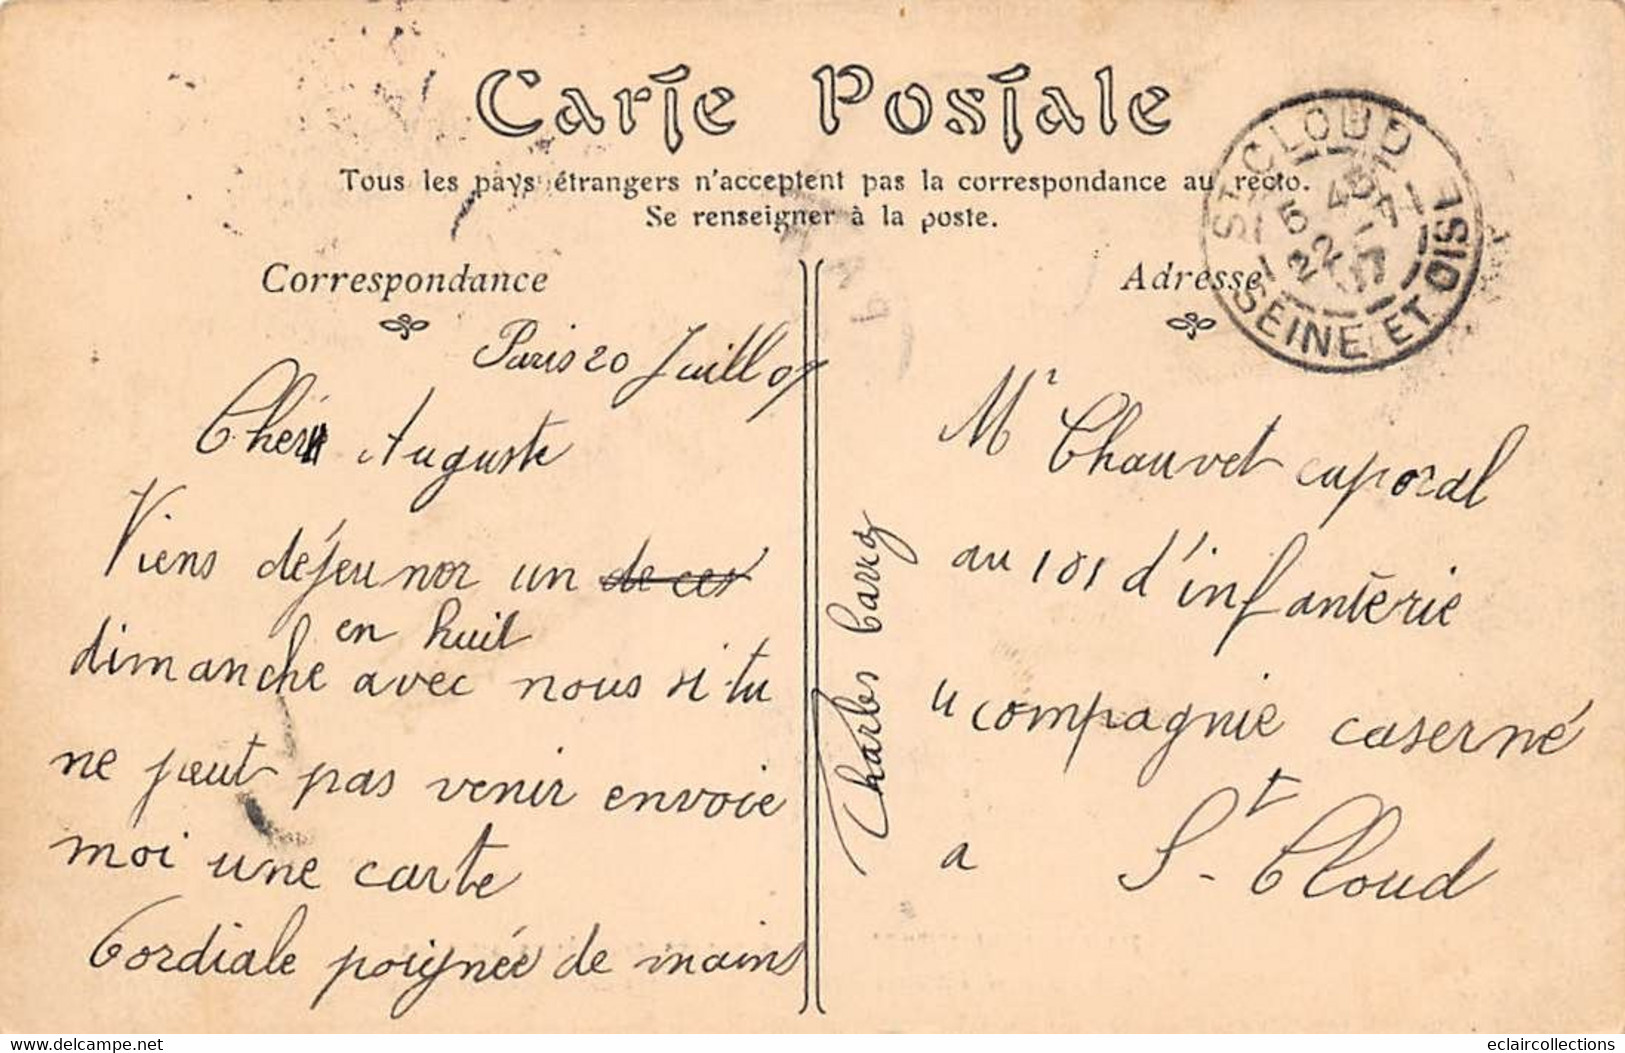 Carte Postale
Tous les pays étrangers n'acceptent pas la correspondance au recto.
Se renseigner à la poste.
Correspondance
Adresse
ST CLOUD
SEINE ET OISE
Paris 20 Juill 07
Cher Auguste
Viens déjeunor un de ces
en huit
dimanche avec nous si tu
ne peut pas venir envoie
moi une carte
Cordiale poignée de mains
Charles
Mr Chauvet caporal
au 101 d'infanterie
4 compagnie caserné
a St. Cloud
eclaircollections